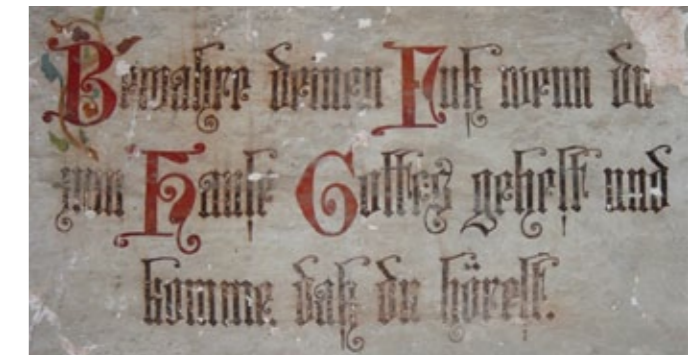 Bewahre deinen Fuß wenn du
zum Hause Gottes gehest und
komme, daß du hörest.